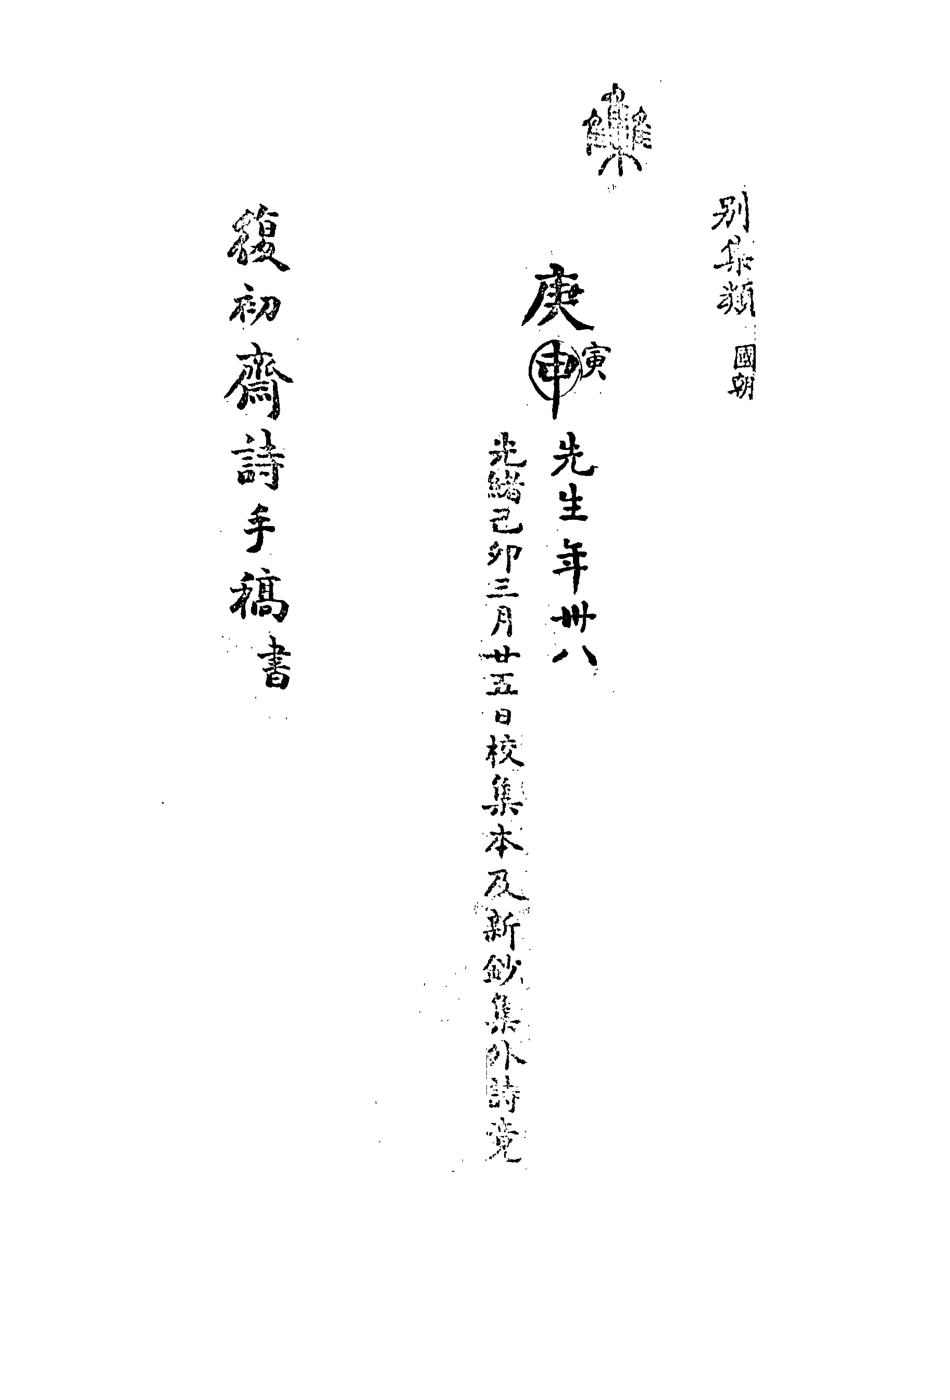 別集類 國朝
庚申寅
先生年卅八
光緒己卯三月廿五日校集本及新鈔集外詩竟
復初齋詩手稿書